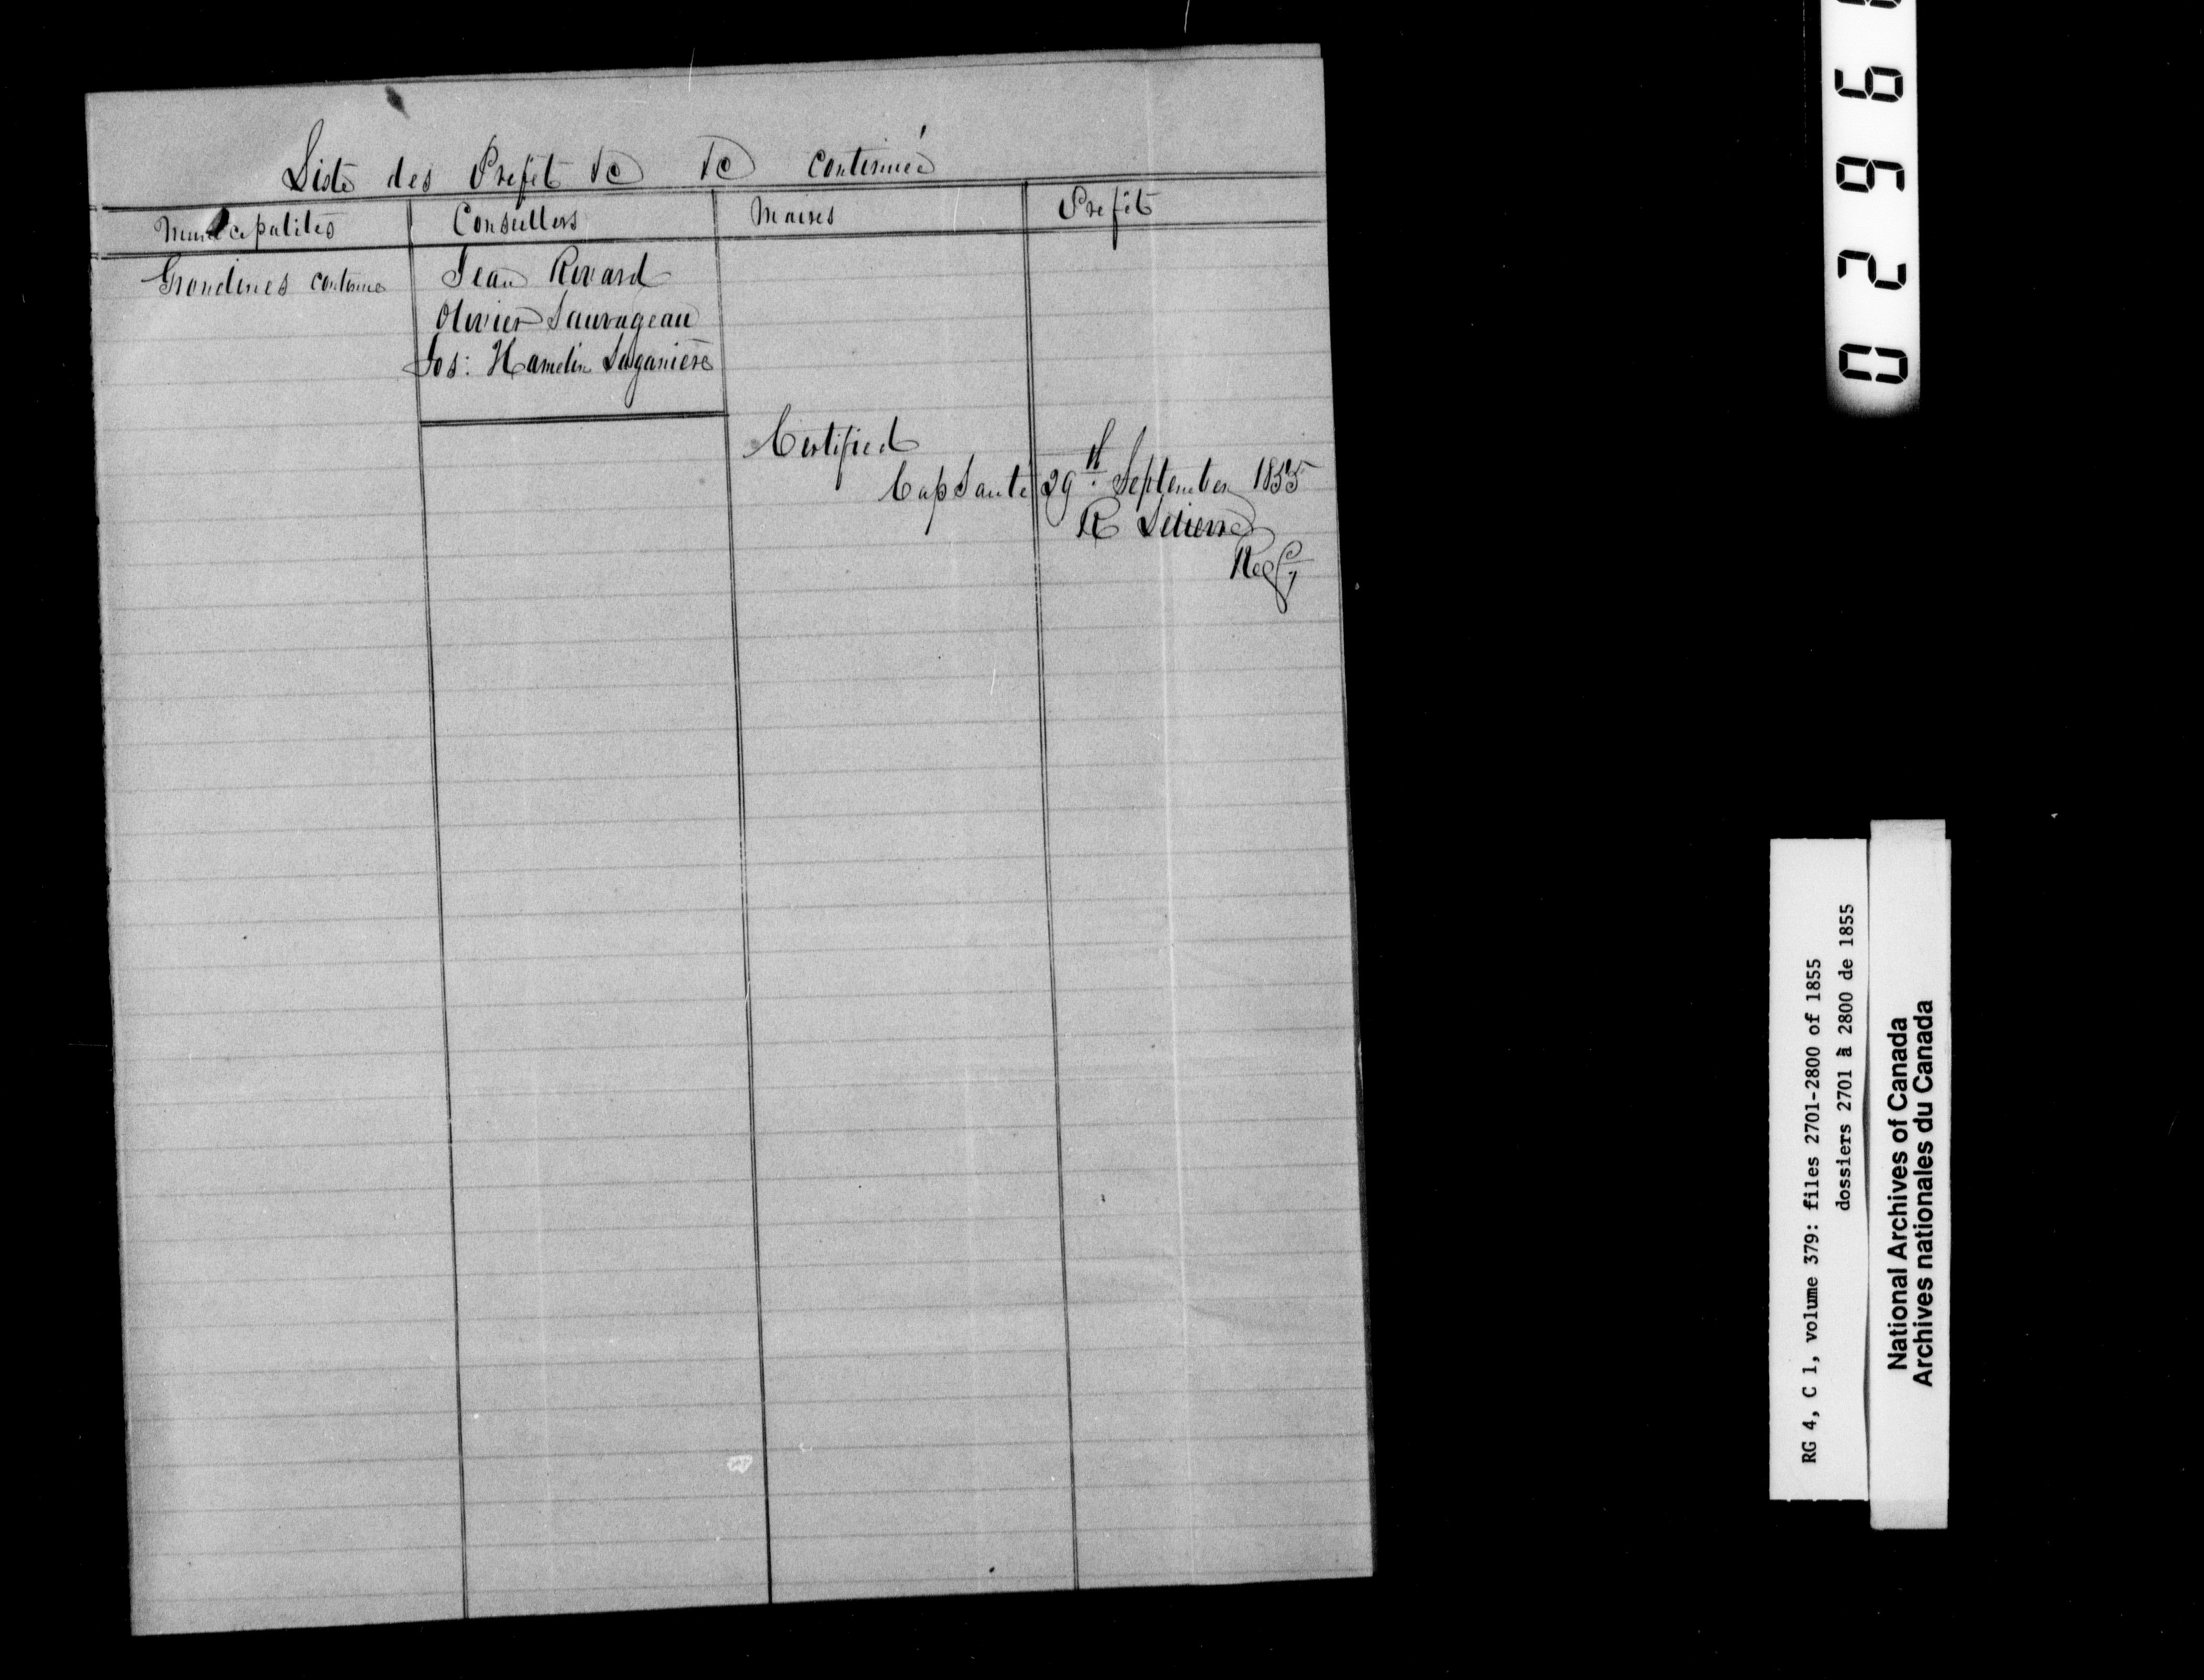 Liste des Prefet &c &c continuée
Municipalités Conseillers Maires Prefêt
Grondines continue Jean Rivard
Olivier Sauvageau
Jos: Hamelin Laganière
Certified
Cap Santé 29th September 1855
R
Reg
RG 4, C 1, volume 379: files 2701-2800 of 1855
dossiers 2701 à 2800 de 1855
National Archives of Canada
Archives nationales du Canada
0296